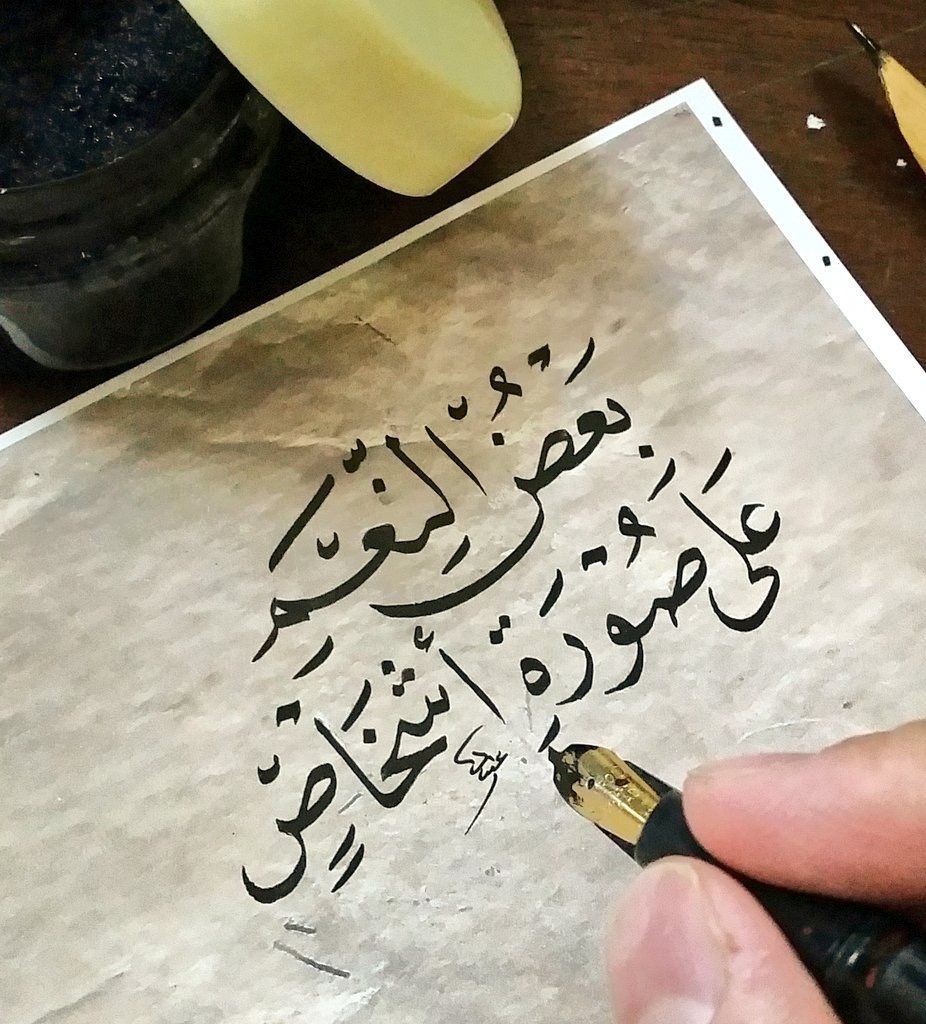 بَعْضُ النِّعَمِ
عَلَى صُوْرَةِ أَشْخَاصٍ